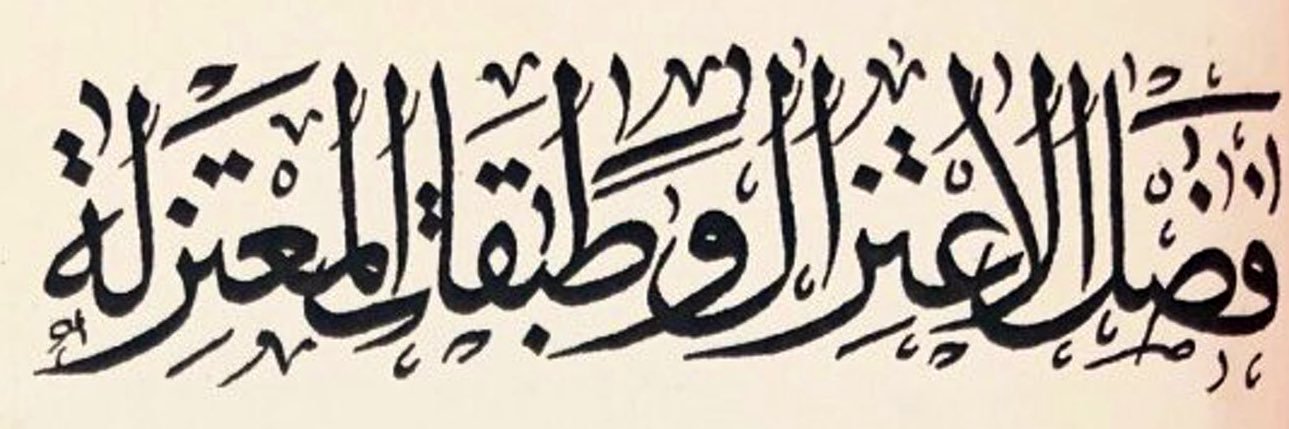 فضل الاعتزال وطبقات المعتزلة